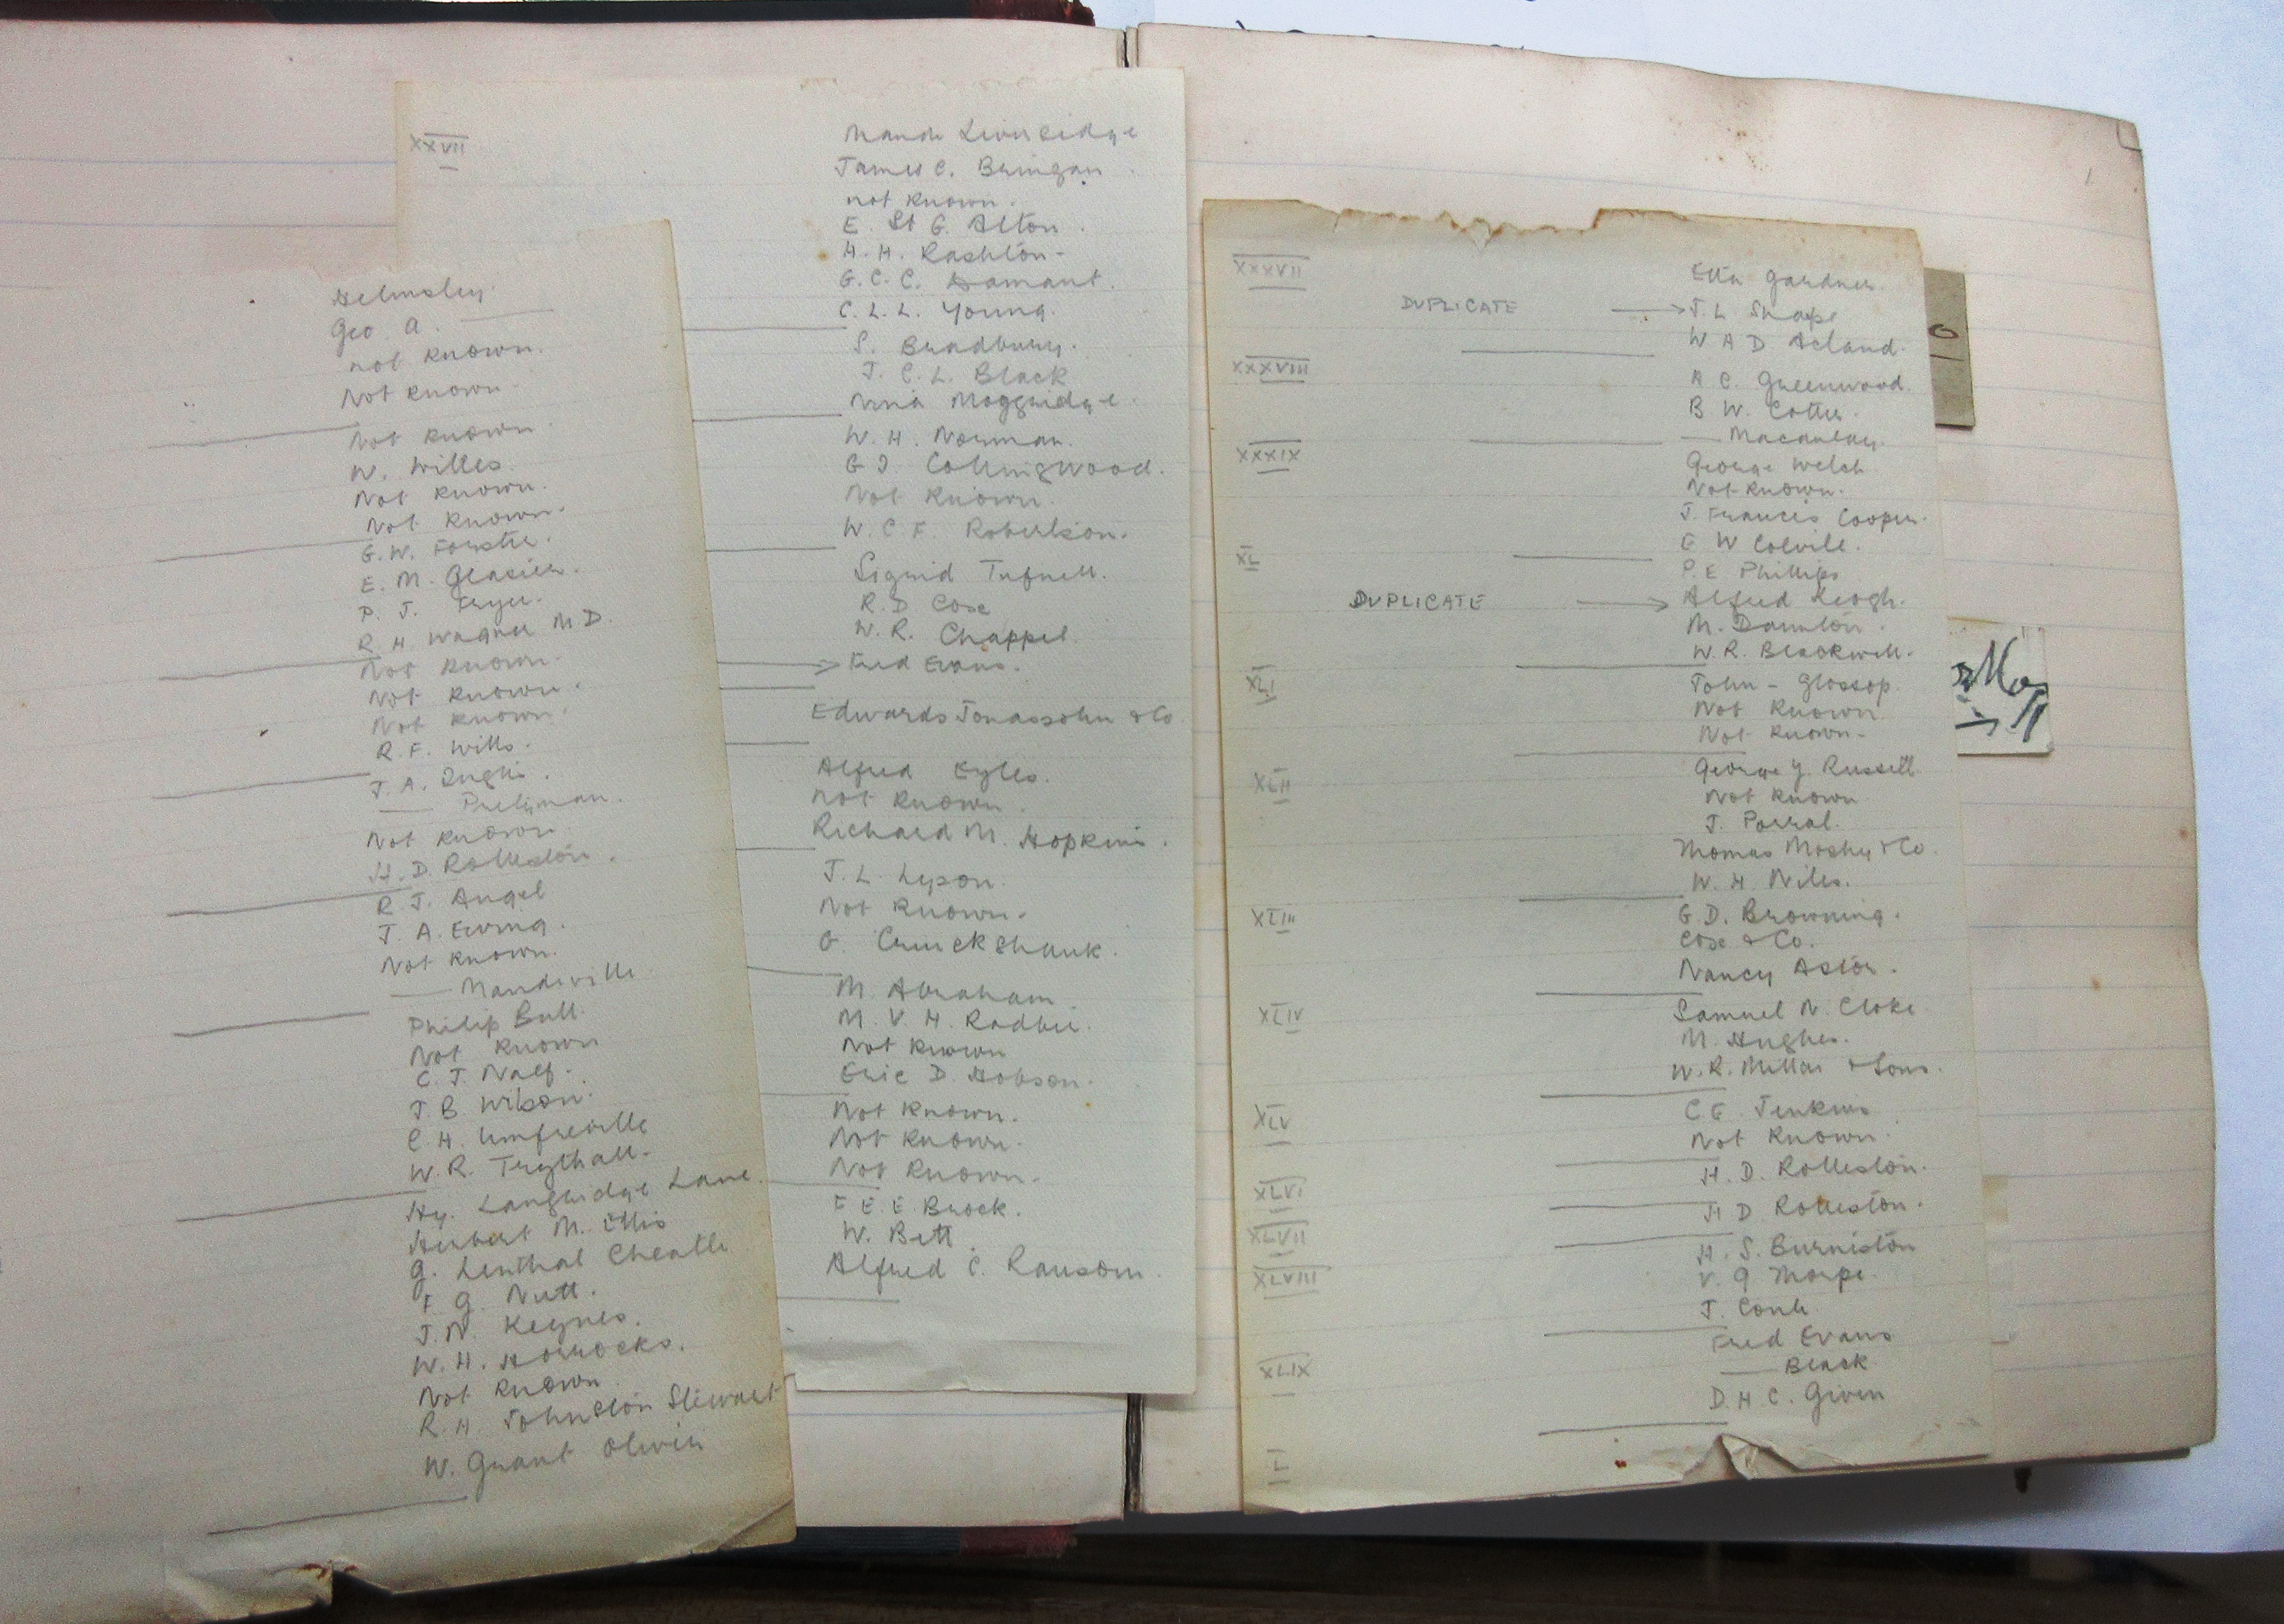 Helmsley.
Geo. A.
not known.
Not known.
Not known.
W. Willes.
Not known.
Not known.
G. W. Forster.
E. M. Glasier.
P. J. Fryer.
R. H. Wagner M D.
Not known.
Not known.
Not known.
R. F. Wills.
J. A. Inglis.
— Pretyman.
Not known
H. D. Rolleston.
R J. Angel
J. A. Ewing.
Not known.
— Mandeville
Philip Bull.
Not known
C. J. Naef.
J. B. Wilson.
C. H. Umfreville
W. R. Trythall.
Hy. Langridge Lane.
Herbert M. Ellis
G. Lenthal Cheatle
F. G. Nutt.
J. N. Keynes.
W. H. Horrocks.
Not known
R. H. Johnston Stewart
W. Grant
XXVII
Maude Liversidge
James C.
not known.
E. St G. Alton.
H. H. Rashton.
G. C. C. Damant.
C. L. L. Young.
S. Bradbury.
J. C. L. Black
Nina Moggridge.
W. H. Norman.
G I. Collingwood.
Not known.
W. C F. Robertson.
Sigrid Tufnell.
R. D Cox
W. R. Chappel.
→ Fred Evans.
Edwards Jonassohn & Co
Alfred Eyles.
Not known.
Richard M. Hopkins.
J. L. Lyson.
Not known.
G. Cruickshank.
M. Abraham
M. V. H.
Not known
Eric D. Hobson.
Not known.
Not known.
Not known.
F E. E Brock.
W. Bett.
Alfred C. Ransom.
XXXVII
Etta Gardner.
DUPLICATE → J. L Snape
W A D Acland.
XXXVIII
A C. Greenwood.
B W. Cotter.
— Macaulay.
XXXIX
George Welch
Not known.
J. Francis Cooper.
E W Colvile.
XL
P. E Phillips
DUPLICATE → Alfred Keogh.
M. Daunton.
W. R. Blackwell.
XLI
John - Glossop.
Not known
Not known.
XLII
George Y. Russell
Not known
J. Porral.
Thomas Mosby & Co.
W. H Niles.
XLIII
G D. Browning.
Cox & Co.
Nancy Astor.
XLIV
Samuel N. Cloke
M. Hughes.
W. R. Millar & Sons.
XLV
C E. Jenkins
Not known.
XLVI
H. D. Rolleston.
XLVII
H D Rolleston.
XLVIII
H. S. Burniston
V. G Thorpe.
J. Conh.
XLIX
Fred Evans
— Black
D. H C. Given
L